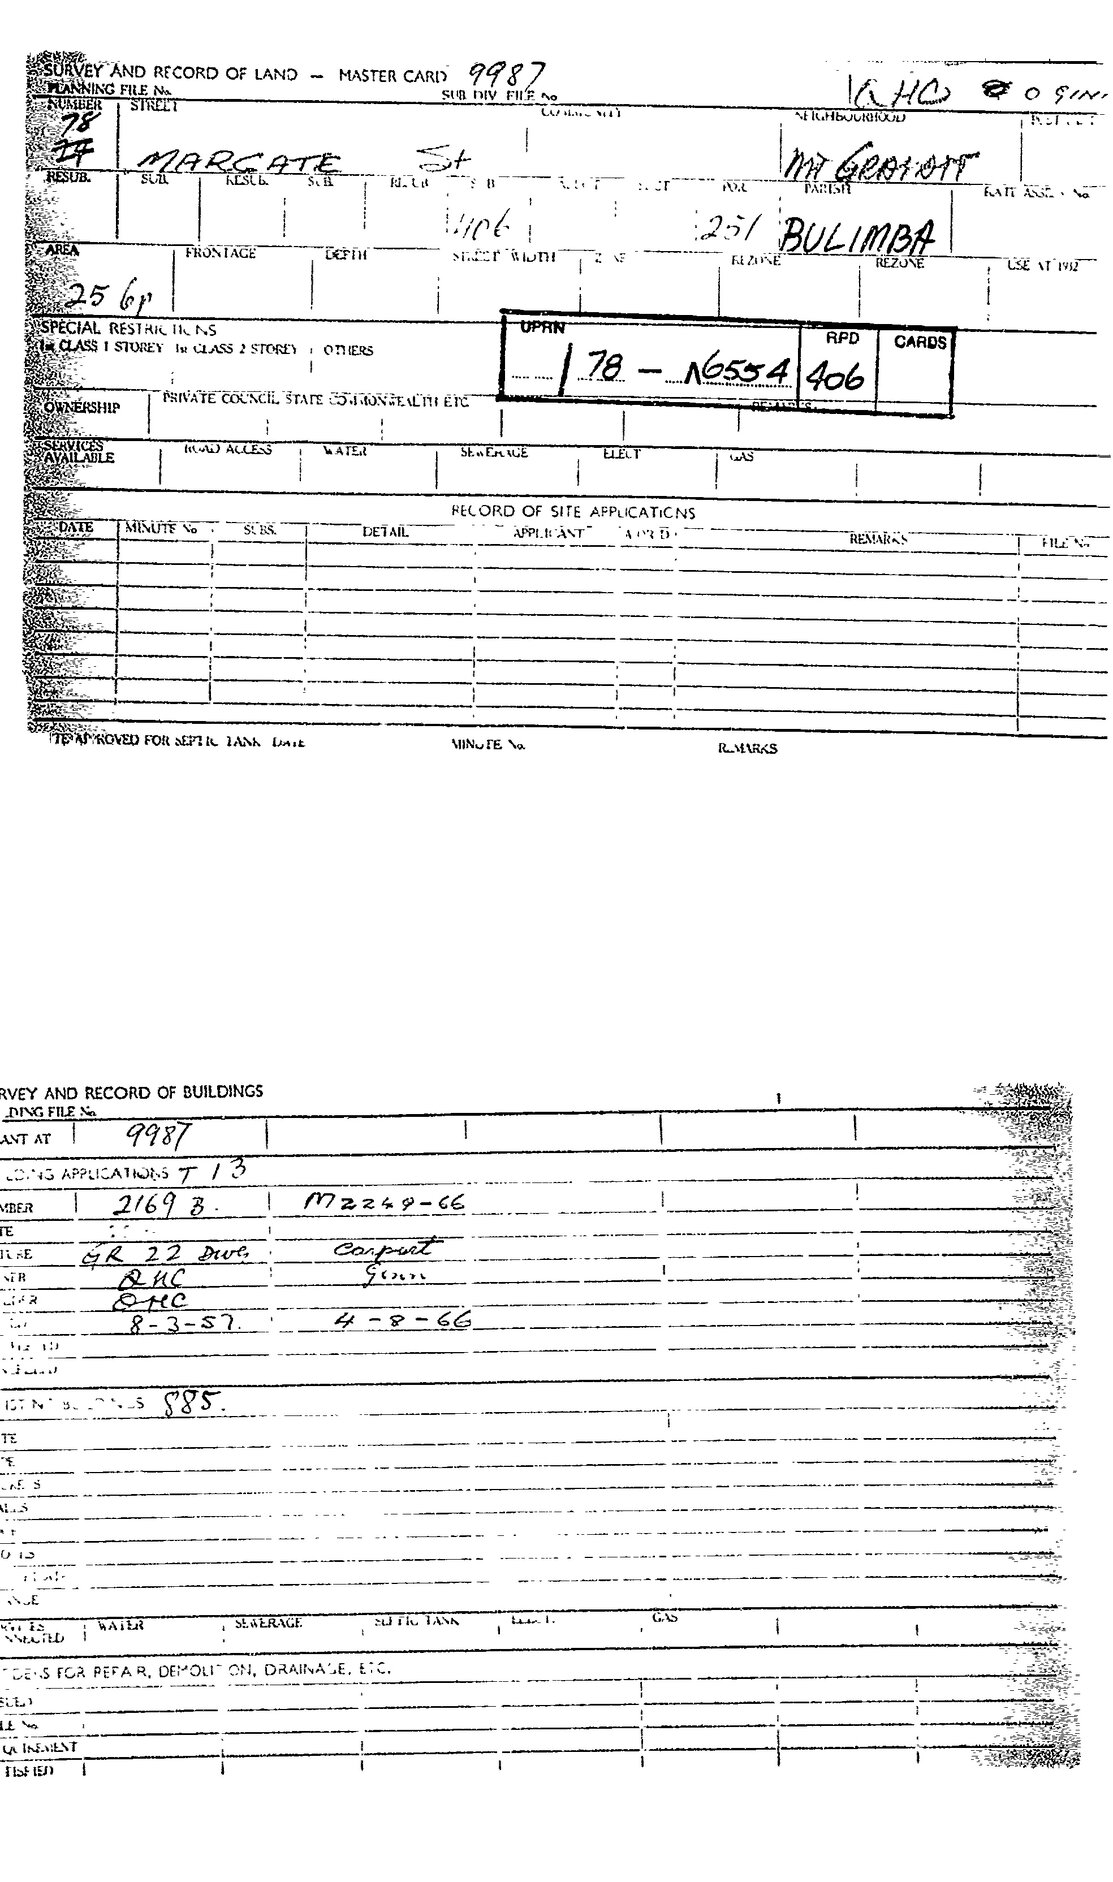 SURVEY AND RECORD OF LAND — MASTER CARD 9987
PLANNING FILE No. SUB DIV. FILE No QHC
NUMBER STREET COMMUNITY NEIGHBOURHOOD
78
MARGATE St MT GRAVATT
RESUB. SUB. RESUB. SUB. RESUB SUB POR. PARISH RATE ASSES. No.
406 251 BULIMBA
AREA FRONTAGE DEPTH STREET WIDTH ZONE REZONE REZONE USE AT 1952
25 6p
SPECIAL RESTRICTIONS UPRN RPD CARDS
1st CLASS 1 STOREY 1st CLASS 2 STOREY OTHERS
/ 78 — N6554 406
OWNERSHIP PRIVATE COUNCIL STATE COMMONWEALTH ETC. REMARKS
SERVICES AVAILABLE ROAD ACCESS WATER SEWERAGE ELECT GAS
RECORD OF SITE APPLICATIONS
DATE MINUTE No SUBS. DETAIL APPLICANT A OR D REMARKS FILE No
ITE APPROVED FOR SEPTIC TANK DATE MINUTE No. REMARKS
RVEY AND RECORD OF BUILDINGS
DING FILE No
ANT AT 9987
LDING APPLICATIONS T 13
MBER 2169 B. M2249-66
TE
TURE GR 22 Dwg Carport
NER QHC Ginn
LDER QHC
8-3-57. 4-8-66
ISTING BUILDINGS 885.
TE
PE
ALLS
VICES NNECTED WATER SEWERAGE SEPTIC TANK ELECT. GAS
DERS FOR REPAIR, DEMOLITION, DRAINAGE, ETC.
SUED
LE No
QUIREMENT
TISFIED